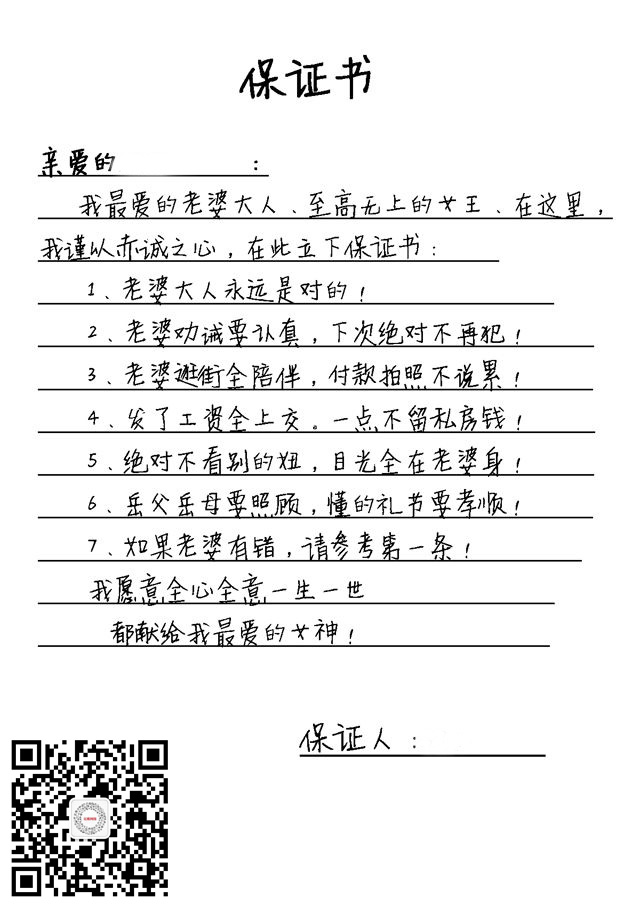 保证书
亲爱的 :
我最爱的老婆大人、至高无上的女王、在这里,
我谨以赤诚之心,在此立下保证书:
1、老婆大人永远是对的!
2、老婆劝诫要认真,下次绝对不再犯!
3、老婆逛街全陪伴,付款拍照不说累!
4、发了工资全上交。一点不留私房钱!
5、绝对不看别的妞,目光全在老婆身!
6、岳父岳母要照顾,懂的礼节要孝顺!
7、如果老婆有错,请参考第一条!
我愿意全心全意一生一世
都献给我最爱的女神!
保证人: